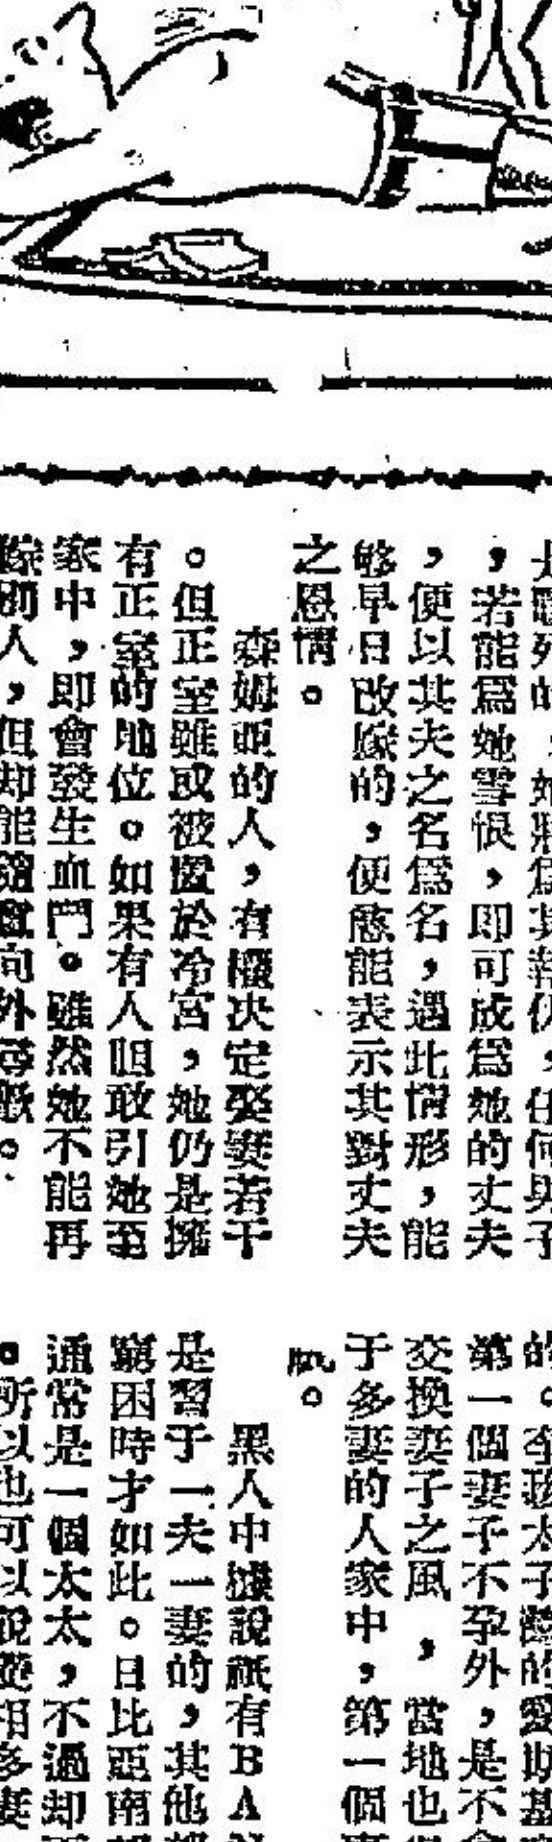 ，若能爲她雪恨，即可成爲她的丈夫
，便以其夫之名爲名，遇此情形，能
够早日改嫁的，便愈能表示其對丈夫
之恩情。
森姆亞的人，有權决定娶妻若干
。但正室雖或被置於冷宮，她仍是擁
有正室的地位。如果有人胆敢引她至
家中，即會發生血鬥。雖然她不能再
嫁別人，但却能隨意向外尋歡。
第一個妻子不孕外，是不
交換妻子之風，當地也
于多妻的人家中，第一個
。
黑人中據說祇有BA
是習于一夫一妻的，其他
窮困時才如此。日比亞南
通常是一個太太，不過却
。所以也可以說變相多妻